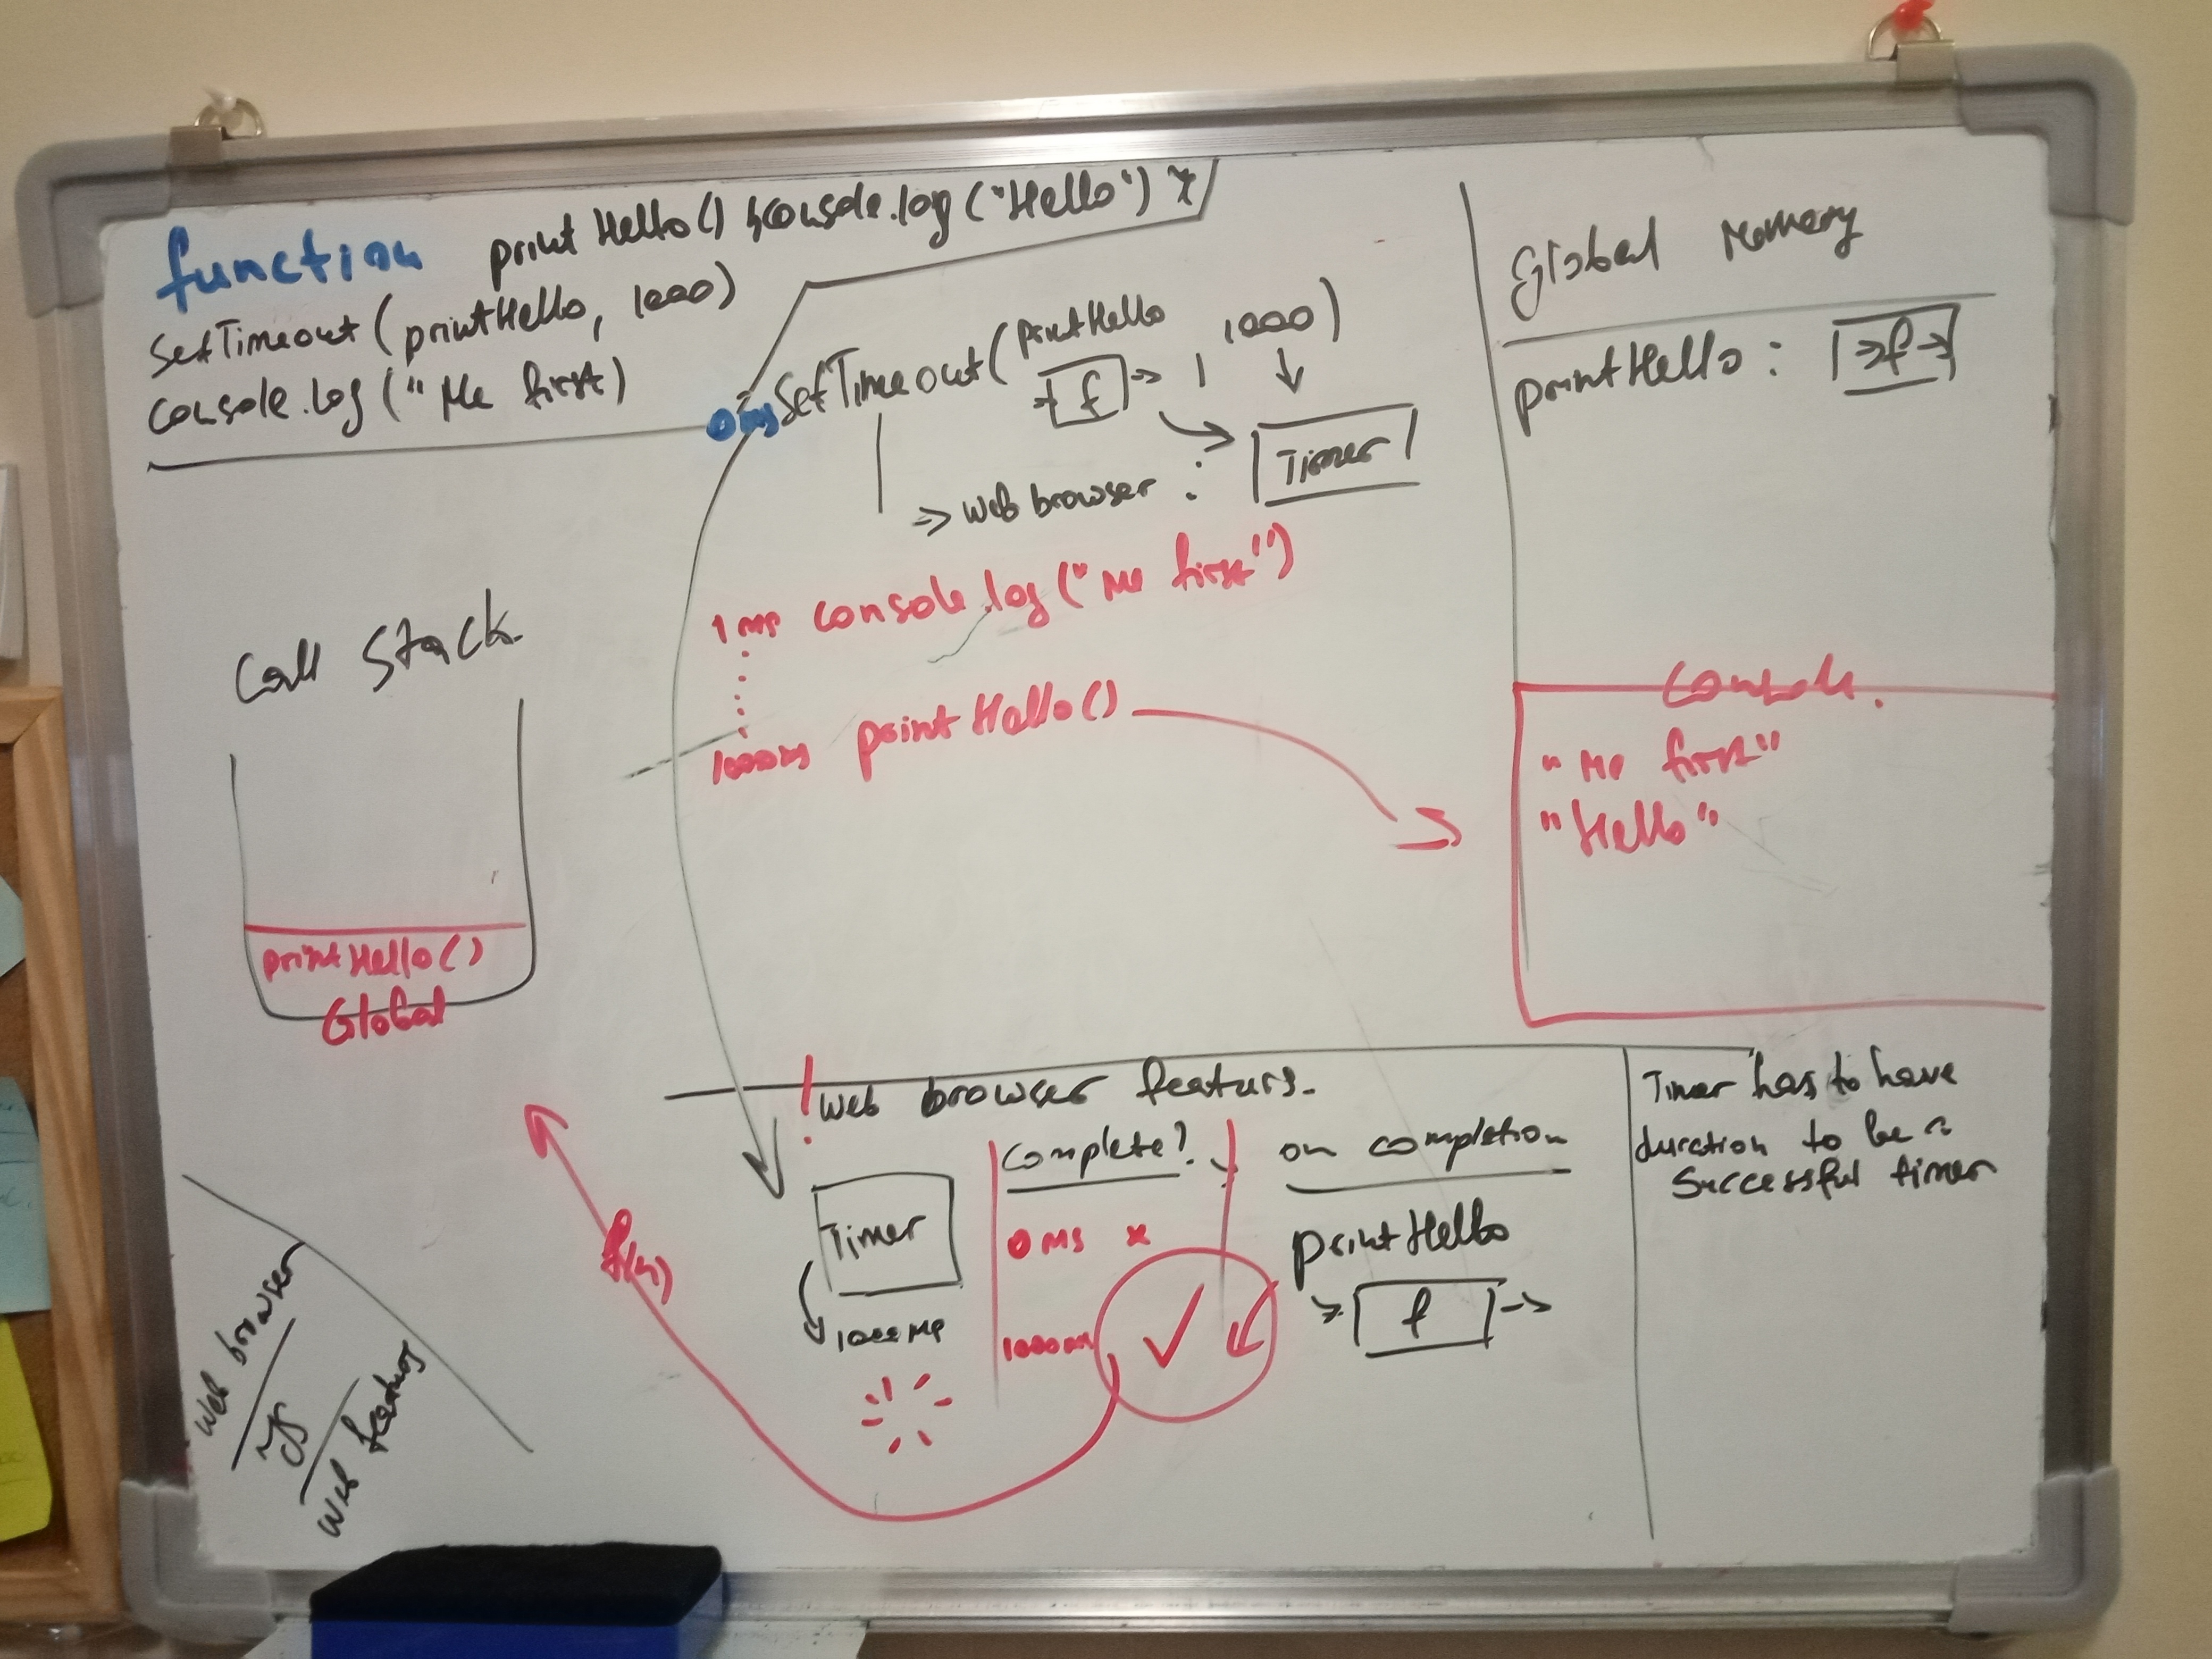 function printHello() {console.log("Hello") }
SetTimeout(printHello, 1000)
console.log("Me first)
0ms SetTimeout(printHello 1000)
f
=> web browser : Timer
1ms console.log("Me first")
1000ms printHello()
Global Memory
printHello : f
Console.
"Me first"
"Hello"
Call Stack
printHello()
Global
! web browser featurs.
Timer
1000ms
Complete?
0 ms x
1000ms ✓
on completion
printHello
f
Timer has to have
duration to be a
Successful timer
web browser
JS